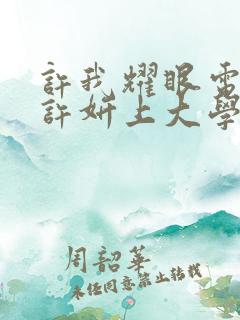 許我耀眼電
許妍上大學
周韶華
未經同意禁止轉載